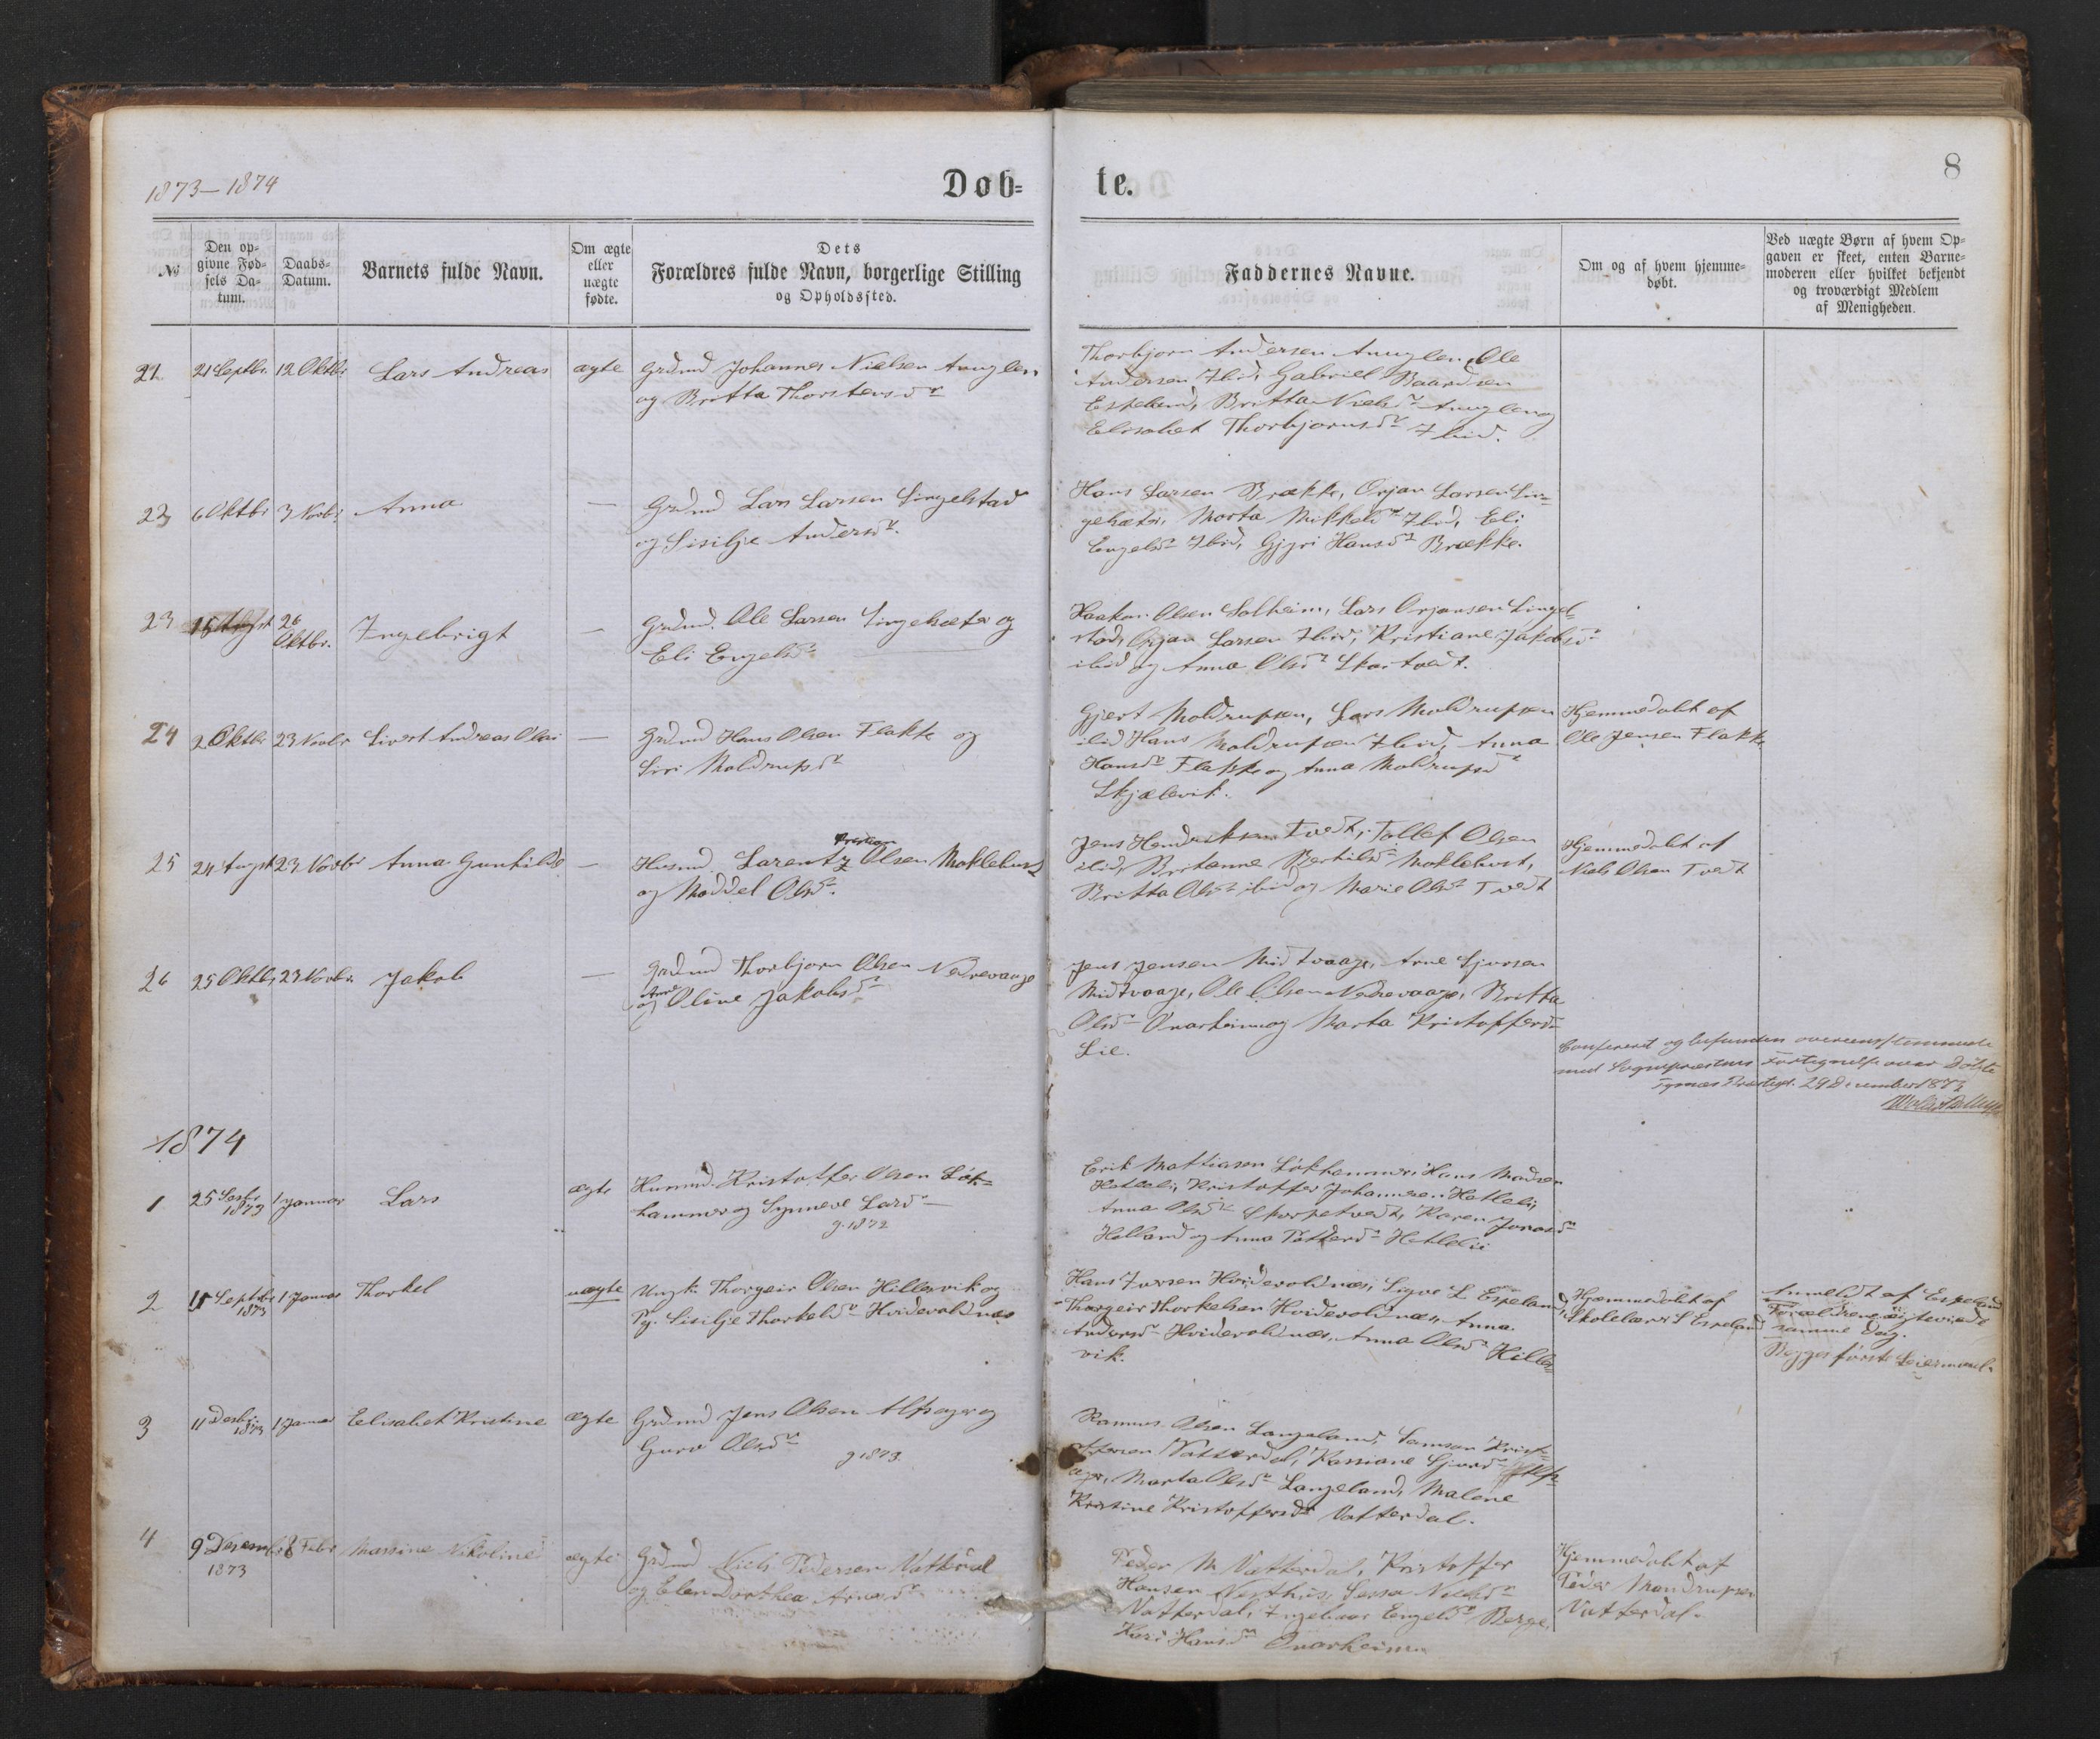 1873–1874
Døb=
te.
8
№
Den op-
givne Fød-
sels Da-
tum.
Daabs-
Datum.
Barnets fulde Navn.
Om ægte
eller
uægte
fødte.
Dets
Forældres fulde Navn, borgerlige Stilling
og Opholdssted.
Faddernes Navne.
Om og af hvem hjemme-
døbt.
Ved uægte Børn af hvem Op-
gaven er skeet, enten Barne-
moderen eller hvilket bekjendt
og troværdigt Medlem
af Menigheden.
21 21 Septbr. 12 Oktbr. Lars Andreas ægte Grdmd Johannes Nielsen Anuglen
og Britta Thorstensdr
Thorbjørn Andersen Anuglen, Ole
Andersen Ibid, Gabriel Baardsen
Espeland, Britta Nielsdr Anuglen og
Elisabet Thorbjørnsdr Ibid.
22 6 Oktbr 3 Novbr Anna — Grdmd Lars Larsen Singelstad
og Sisilje Andersdr.
Hans Larsen Brække, Ørjan Larsen Sin-
gelsæter, Marta Mikkelsdr Ibid, Eli
Engelsdr Ibid, Gjyri Hansdr Brække.
23 15 August 26
Oktbr. Ingebrigt — Grdmd. Ole Larsen Singelsæter og
Eli Engelsdr
Haakon Olsen Solheim, Lars Ørjansen Singel-
stad, Ørjan Larsen Ibid, Kristiane Jakobsdr
ibid og Anna Olsdr Skartvedt.
24 2 Oktbr 23 Novbr Sivert Andreas Olai — Grdmd Hans Olsen Flakke og
Siri Moldrupsdr
Gjert Moldrupsen, Lars Moldrupsen
ibid Hans Moldrupsen Ibid, Anna
Hansdr Flakke og Anna Moldrupsdr
Skjælevik.
Hjemmedøbt af
Ole Jensen Flakke
25 24 August 23 Novbr Anna Gunhilde — Husmd. Larentz Olsen Moklehust
og Moddel Olsdr.
Jens Hendriksen Tvedt, Tollef Olsen
ibid, Britanne Bertilsdr Moklehust,
Britta Olsdr ibid og Marie Olsdr Tvedt
Hjemmedøbt af
Niels Olsen Tvedt
26 25 Oktbr 23 Novbr. Jakob — Grdmd Thorbjørn Olsen Nedrevaage
og Anne Oline Jakobsdr
Jens Jensen Midtvaage, Arne Sjursen
Midtvaage, Ole Olsen Nedrevaage, Britta
Olsdr Onarheim og Marta Kristoffersdr
Lie.
Confereret og befunden overensstemmende
med Sognepræstens Fortegnelse over Døbte
Tysnæs Præstegd. 29 December 1873
1874
1 25 Desbr
1873 1 Januar Lars ægte Husmd. Kristoffer Olsen Løk-
hammer og Synneve Larsdr
g. 1872
Erik Mattiasen Løkhammer, Hans Madsen
Hetleli, Kristoffer Johannesen Hetleli,
Anna Olsdr Skorpetvedt, Karen Jonasdr
Helland og Anna Pettersdr Hetleli
2 15 Septbr
1873 1 Januar Thorkel uægte Ungk. Thorgeir Olsen Hillesvik og
Pg. Sisilje Thorkelsdr Hvidevoldnæs
Hans Iversen Hvidevoldnæs, Sigve L Espeland,
Thorgeir Thorkelsen Hvidevoldnæs, Anna
Andersdr Hvidevoldnæs, Anna Olsdr Hilles-
vik.
Hjemmedøbt af
Skolelærer S Espeland
Anmeldt af Espeland
Forældrene ægteviede
samme Dag.
Begges første Leiermaal.
3 11 Desbr
1873 1 Januar Elisabet Kristine ægte Grdmd Jens Olsen Alfsager og
Guro Olsdr
g 1873
Rasmus Olsen Langeland, Samson Krist-
offersen Vatterdal, Kassiane Sjursdr Alfs-
ager, Marta Olsdr Langeland, Malene
Kristine Kristoffersdr Vatterdal.
4 9 Desembr
1873 8 Febr Massine Nikoline ægte Grdmd Niels Pedersen Vatterdal
og Elen Dorthea Arnesdr
Peder M Vatterdal, Kristoffer
Hansen Nesthus, Sessa Nielsdr
Vatterdal, Ingeborg Engelsdr Berge,
Kari Hansdr Onarheim
Hjemmedøbt af
Peder Mandrupsen
Vatterdal.